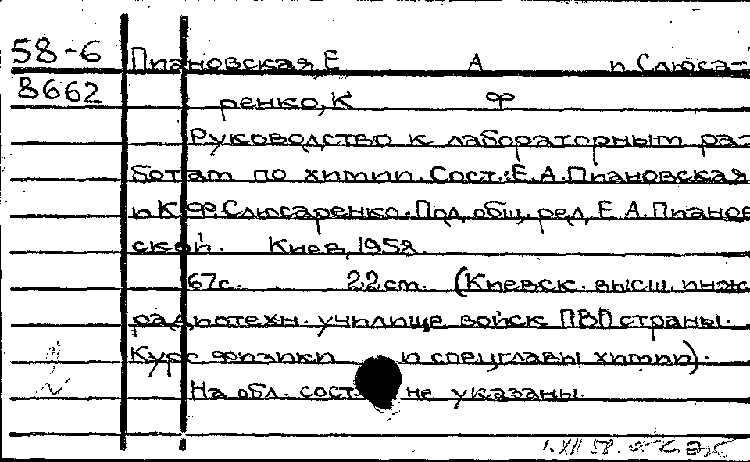 58-6 Пиановская, Е А и Слюса-
8662 ренко, К Ф
Руководство к лабораторным ра-
ботам по химии. Сост.: Е.А. Пиановская
и К.Ф. Слюсаренко. Под общ. ред. Е.А. Пианов
ской. Киев, 1958.
67с. 22 см. (Киевск. высш. инж
радиотехн. училище войск ПВО страны.
Курс физики и спецглавы химии).
На обл. сост. не указаны.
1.XII 58.